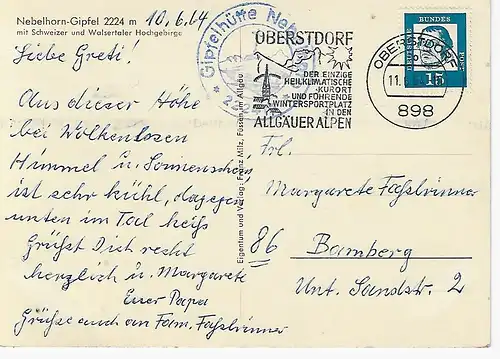 Nebelhorn-Gipfel 2224 m
mit Schweizer und Walsertaler Hochgebirge
10.6.64
Liebe Greti!
Aus dieser Höhe
bei Wolkenlosen
Himmel u. Sonnenschein
ist sehr kühl, dagegen
unten im Tal heiß
Grüßt Dich recht
herzlich u. Margarete
Euer Papa
Grüße auch an Fam. Faßbrinner
Eigentum und Verlag: Franz Milz, Füssen im Allgäu
Gipfelhütte
OBERSTDORF
DER EINZIGE
HEILKLIMATISCHE
KURORT
UND FÜHRENDE
WINTERSPORTPLATZ
IN DEN
ALLGÄUER ALPEN
OBERSTDORF
11.
898
DEUTSCHE BUNDESPOST
15
Frl.
Margarete Faßbrinner
86 Bamberg
Unt. Sandstr. 2